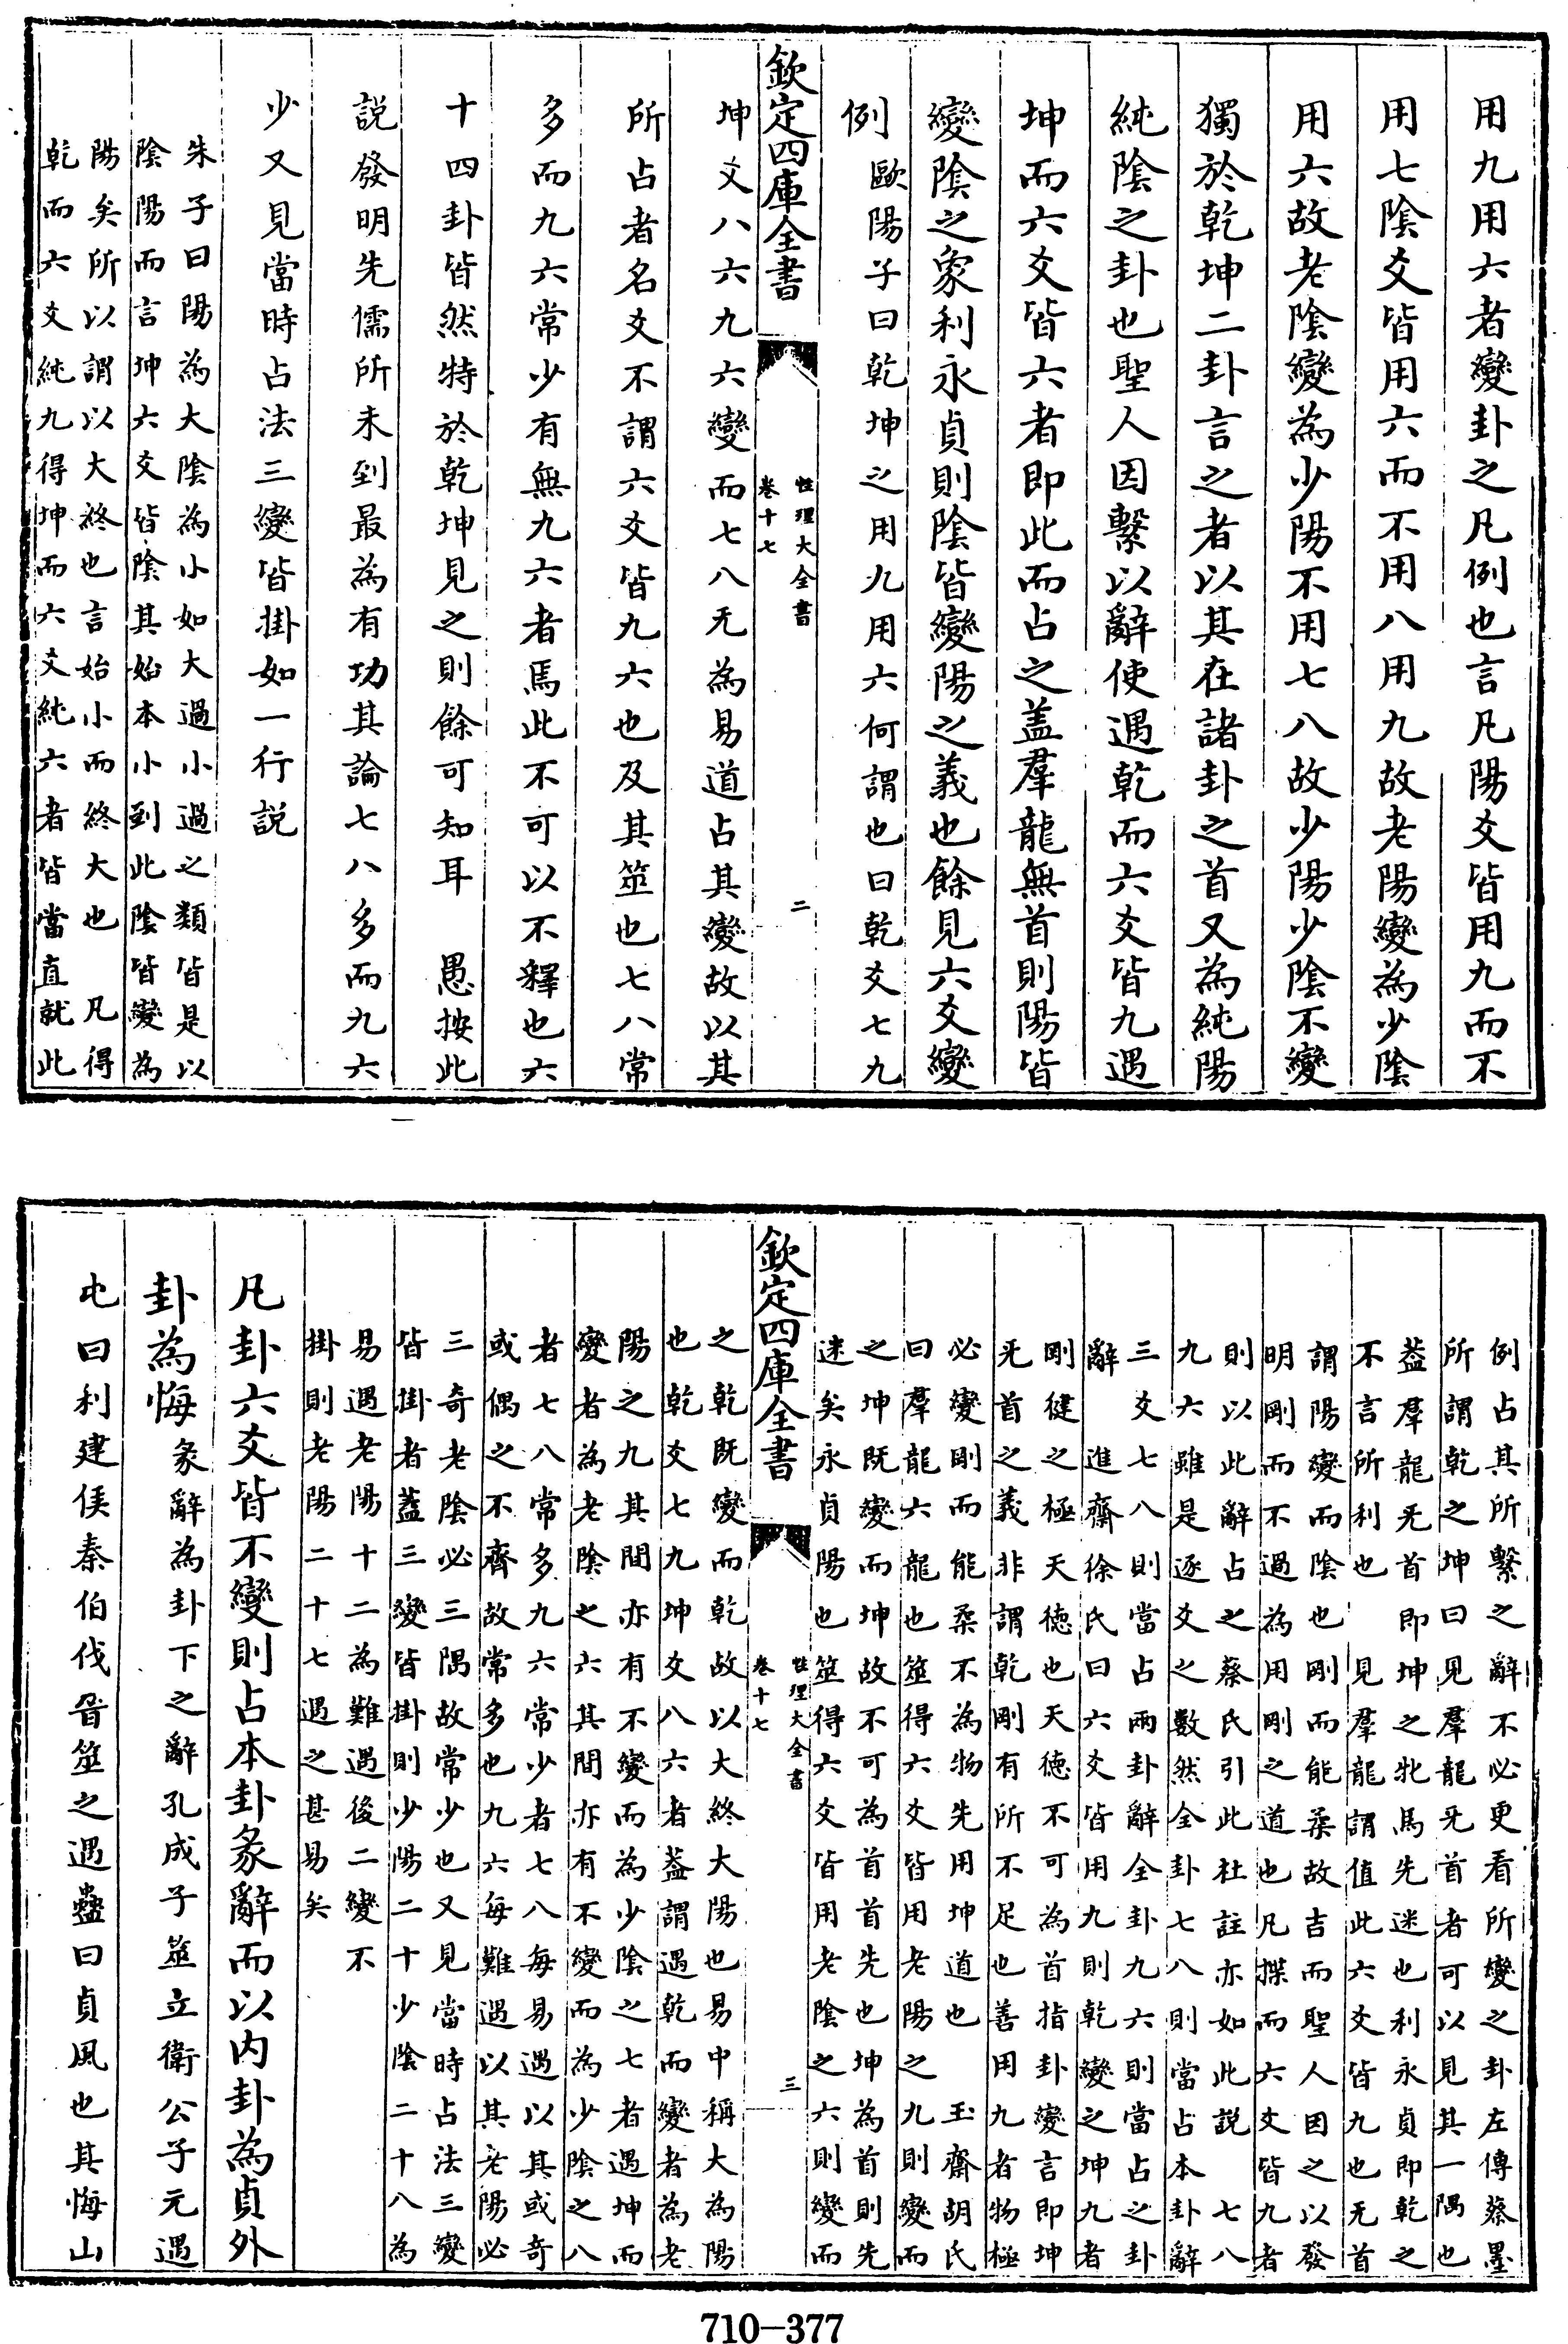 用九用六者變卦之凡例也言凡陽爻皆用九而不
用七陰爻皆用六而不用八用九故老陽變為少陰
用六故老陰變為少陽不用七八故少陽少陰不變
獨於乾坤二卦言之者以其在諸卦之首又為純陽
純陰之卦也聖人因繫以辭使遇乾而六爻皆九遇
坤而六爻皆六者即此而占之盖羣龍無首則陽皆
變陰之象利永貞則陰皆變陽之義也餘見六爻變
例 歐陽子曰乾坤之用九用六何謂也曰乾爻七九
欽定四庫全書
性理大全書
卷十七
二
坤爻八六九六變而七八无為易道占其變故以其
所占者名爻不謂六爻皆九六也及其筮也七八常
多而九六常少有無九六者焉此不可以不釋也六
十四卦皆然特於乾坤見之則餘可知耳 愚按此
説發明先儒所未到最為有功其論七八多而九六
少又見當時占法三變皆掛如一行説
朱子曰陽為大陰為小如大過小過之類皆是以
陰陽而言坤六爻皆陰其始本小到此陰皆變為
陽矣所以謂以大終也言始小而終大也 凡得
乾而六爻純九得坤而六爻純六者皆當直就此
例占其所繫之辭不必更看所變之卦左傳蔡墨
所謂乾之坤曰見羣龍无首者可以見其一隅也
盖羣龍无首即坤之牝馬先迷也利永貞即乾之
不言所利也 見羣龍謂值此六爻皆九也无首
謂陽變而陰也剛而能柔故吉而聖人因之以發
明剛而不過為用剛之道也凡揲而六爻皆九者
則以此辭占之蔡氏引此杜註亦如此説 七八
九六雖是逐爻之數然全卦七八則當占本卦辭
三爻七八則當占兩卦辭全卦九六則當占之卦
辭 進齋徐氏曰六爻皆用九則乾變之坤九者
剛健之極天德也天德不可為首指卦變言即坤
无首之義非謂乾剛有所不足也善用九者物極
必變剛而能柔不為物先用坤道也 玉齋胡氏
曰羣龍六龍也筮得六爻皆用老陽之九則變而
之坤既變而坤故不可為首首先也坤為首則先
迷矣永貞陽也筮得六爻皆用老陰之六則變而
欽定四庫全書
性理大全書
卷十七
三
之乾既變而乾故以大終大陽也易中稱大為陽
也乾爻七九坤爻八六者盖謂遇乾而變者為老
陽之九其間亦有不變而為少陰之七者遇坤而
變者為老陰之六其間亦有不變而為少陰之八
者七八常多九六常少者七八每易遇以其或奇
或偶之不齊故常多也九六每難遇以其老陽必
三奇老陰必三隅故常少也又見當時占法三變
皆掛者盖三變皆掛則少陽二十少陰二十八為
易遇老陽十二為難遇後二變不
掛則老陽二十七遇之甚易矣
凡卦六爻皆不變則占本卦彖辭而以内卦為貞外
卦為悔 彖辭為卦下之辭孔成子筮立衛公子元遇
屯曰利建侯秦伯伐晉筮之遇蠱曰貞風也其悔山
710-377